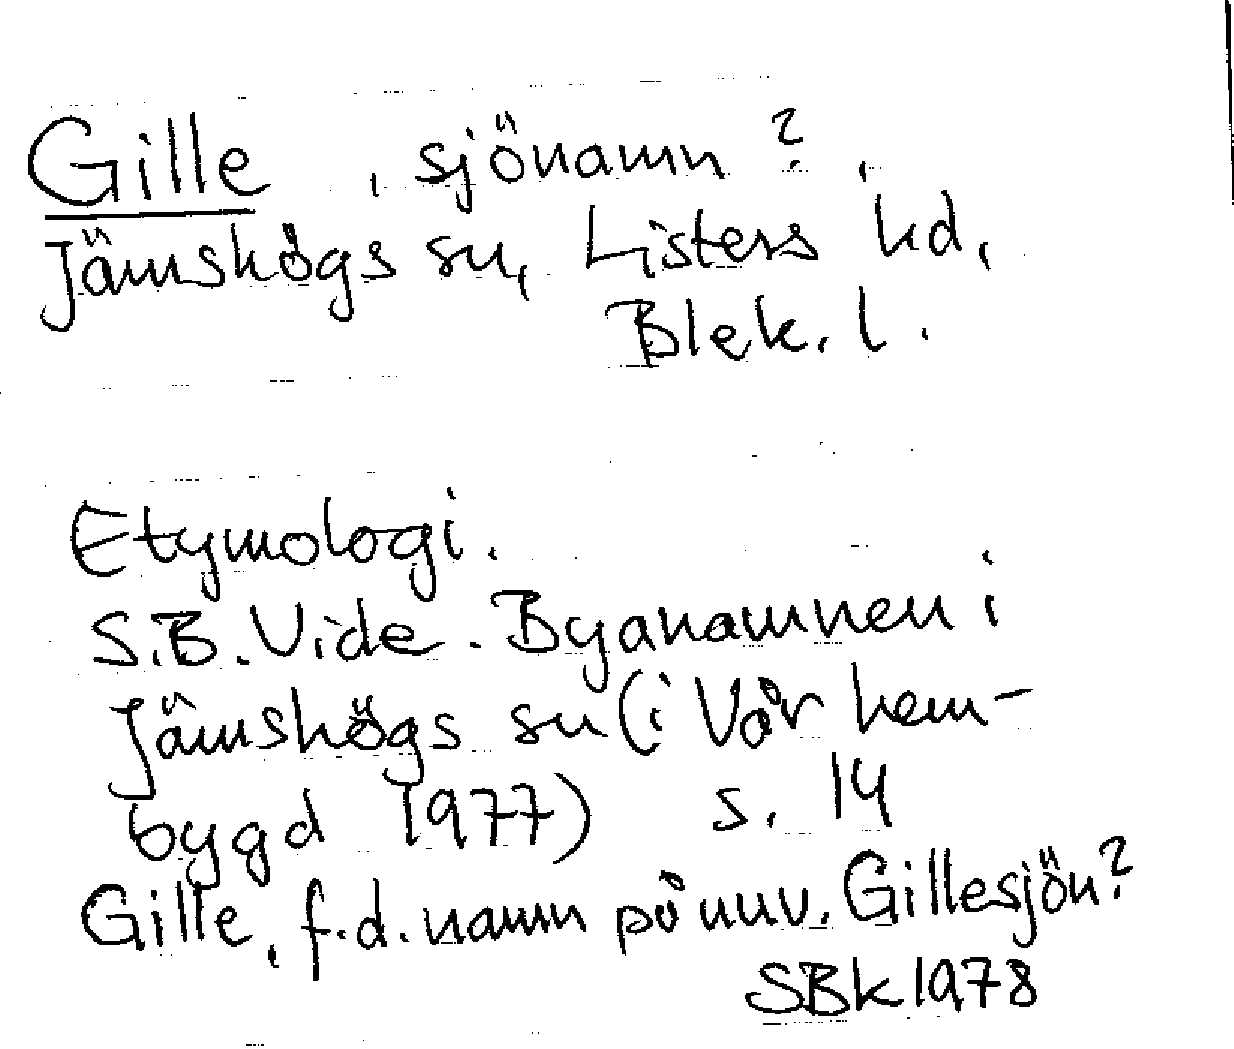 Gille, sjönamn?,
Jämshögs sn, Listers hd,
Blek. l.
Etymologi.
S.B. Vide. Byanamnen i
Jämshögs sn (i Vår hem-
bygd 1977) s. 14
Gille, f.d. namn på nuv. Gillesjön?
SBk 1978